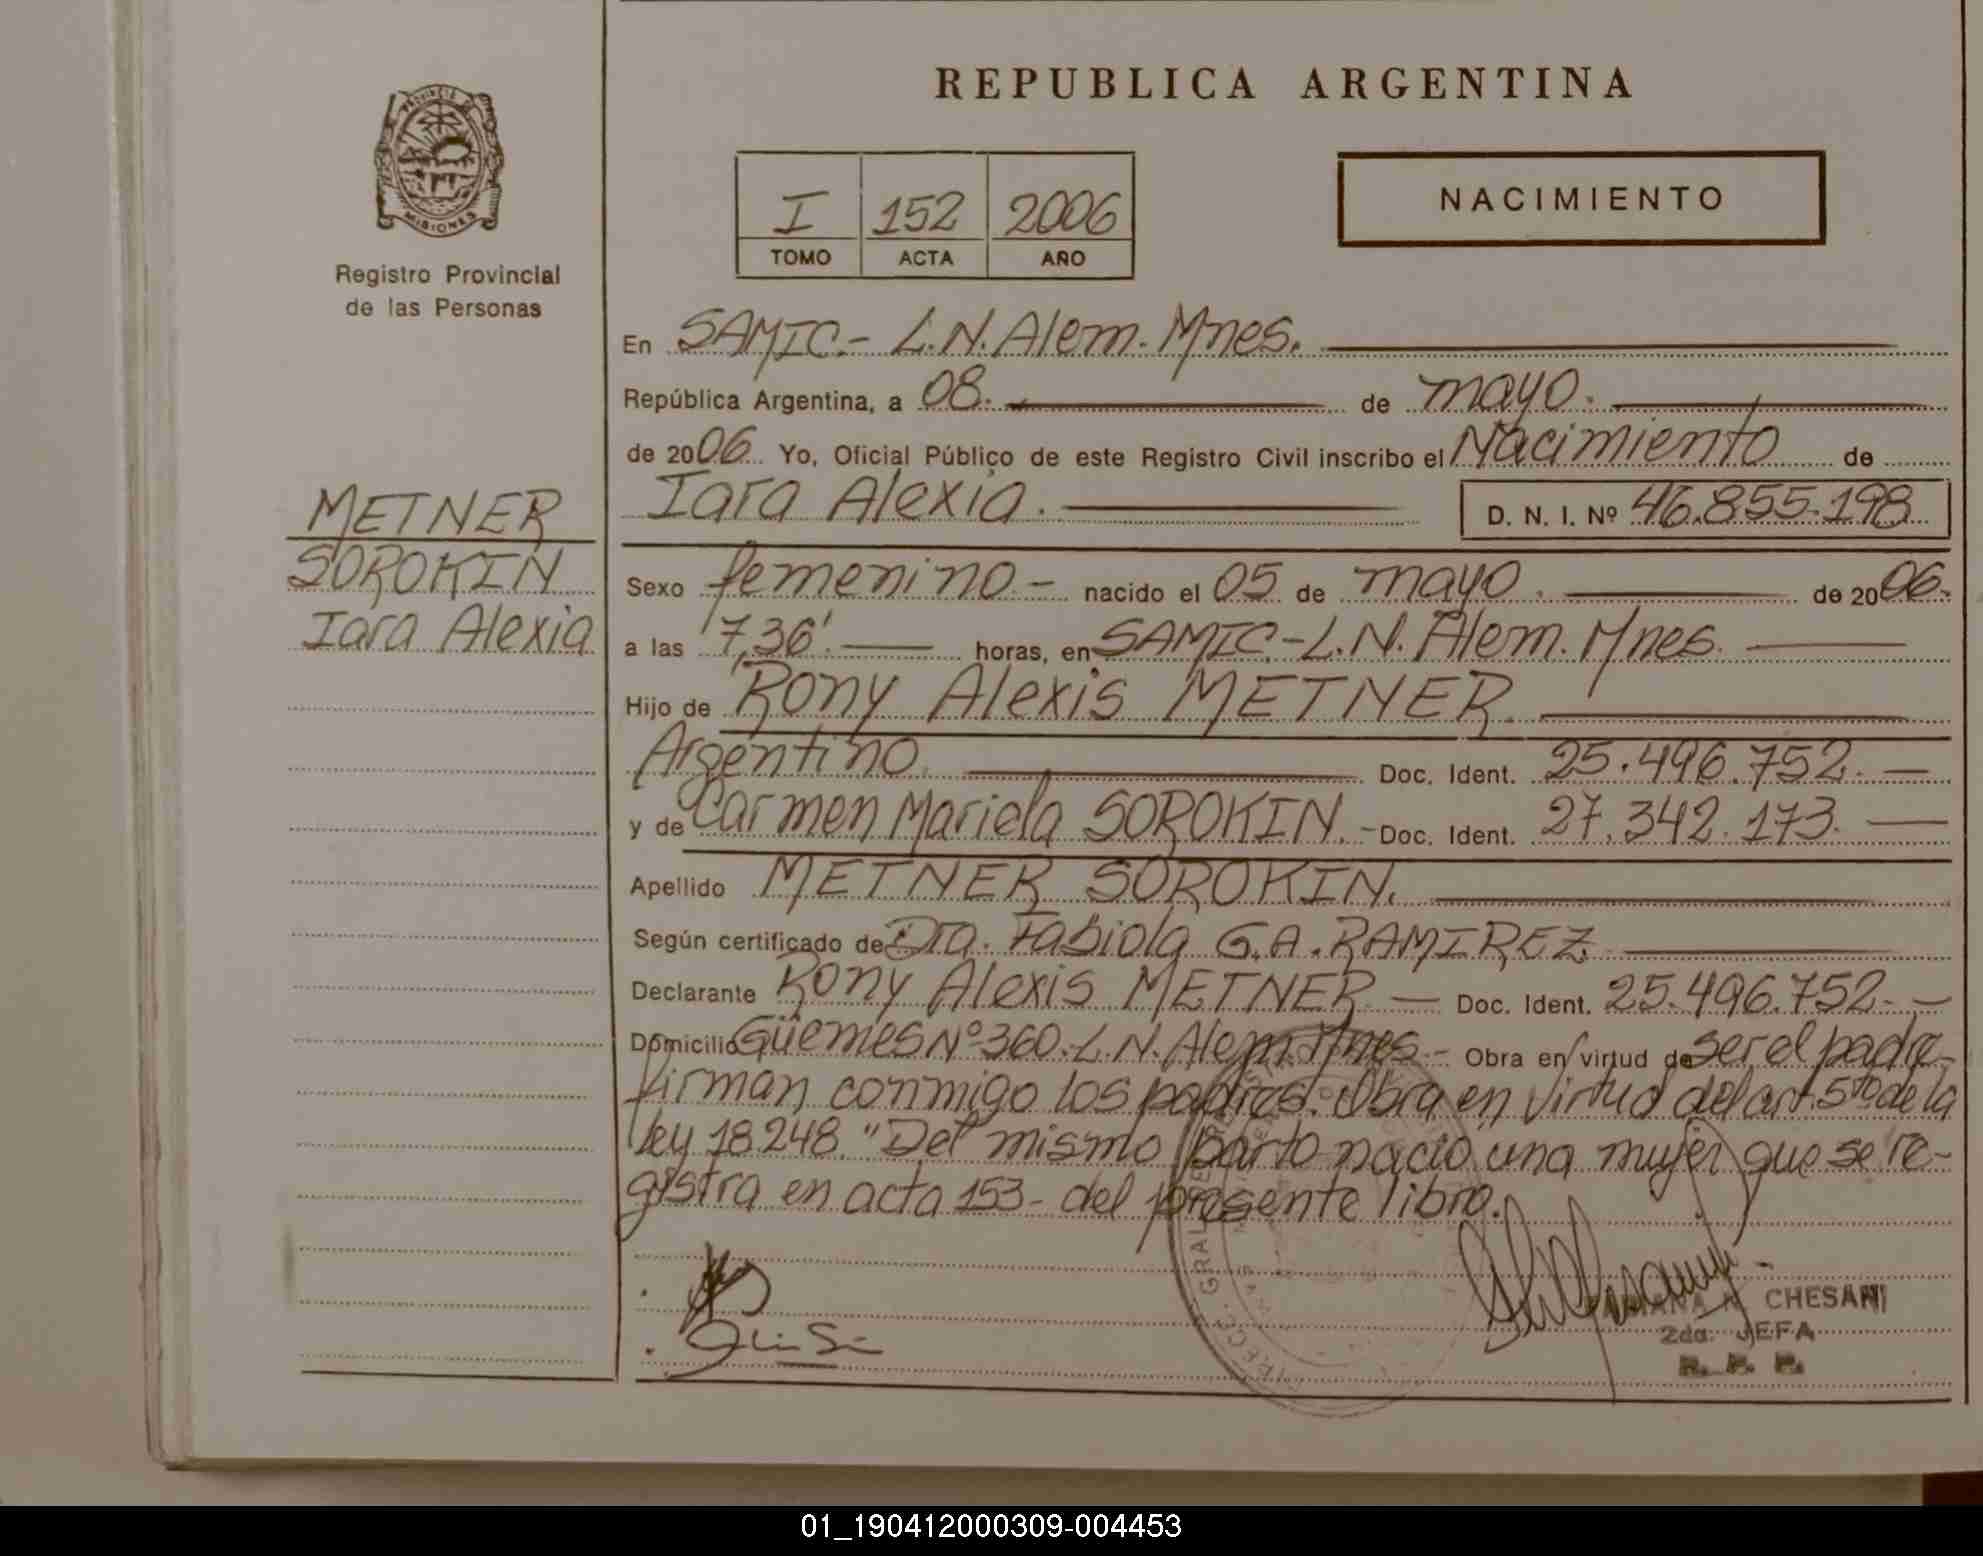 REPUBLICA ARGENTINA
I 152 2006
TOMO ACTA AÑO
NACIMIENTO
PROVINCIA DE
MISIONES
Registro Provincial
de las Personas
METNER
SOROKIN
Iara Alexia
En SAMIC.- L.N. Alem. Mnes.
República Argentina, a 08. de mayo.
de 2006. Yo, Oficial Público de este Registro Civil inscribo el Nacimiento de
Iara Alexia. D. N. I. Nº 46.855.198
Sexo femenino.- nacido el 05 de mayo. de 2006.
a las 7,36'. horas, en SAMIC.-L.N. Alem. Mnes.
Hijo de Rony Alexis METNER.
Argentino. Doc. Ident. 25.496.752.
y de Carmen Mariela SOROKIN.- Doc. Ident. 27.342.173.
Apellido METNER SOROKIN.
Según certificado de Dra. Fabiola G.A. RAMIREZ.
Declarante Rony Alexis METNER. Doc. Ident. 25.496.752.-
Domicilio Güemes Nº 360.-L.N. Alem. Mnes.- Obra en virtud de ser el padre-
firman conmigo los padres. Obra en virtud del art. 5to de la
ley 18.248. "Del mismo parto nació una mujer que se re-
gistra en acta 153- del presente libro.
CHESANI
2da. JEFA
R. P. P.
01_190412000309-004453